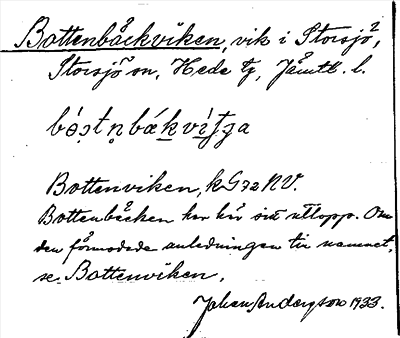 Bottenbäckviken, vik i Storsjö,
Storsjö sn, Hede tg, Jämtl. l.
Bottenviken, k G 72 NV.
Bottenbäcken har här sitt utlopp. Om
den förmodade anledningen till namnet,
se Bottenviken.
Johan Anderson 1933.